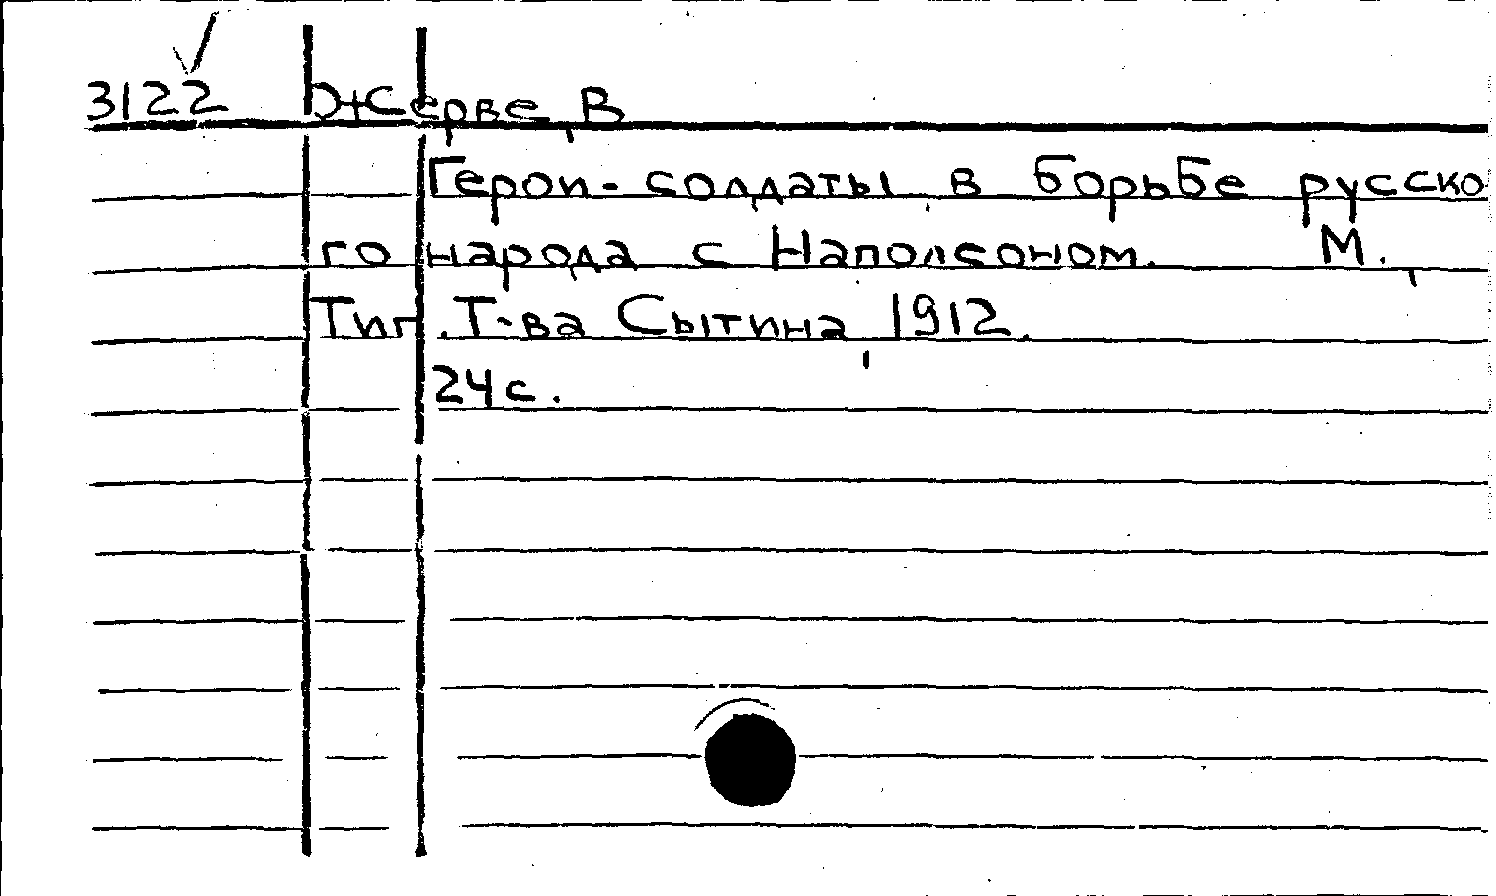 3122 Жерве, В
Герои-солдаты в борьбе русско
го народа с Наполеоном. М.,
Тип. Т-ва Сытина, 1912.
24 с.